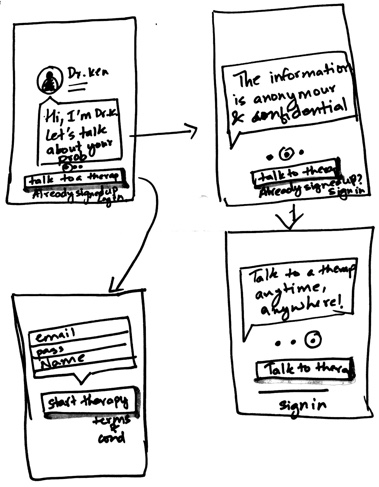 Dr. Ken
Hi, I'm Dr.K.
Let's talk
about your
Prob
talk to a therap
Already signed up
Login
The information
is anonymour
& confidential
talk to therap
Already signed up?
Sign in
Talk to a therap
anytime,
anywhere!
Talk to thera
sign in
email
pass
Name
start therapy
terms
&
cond